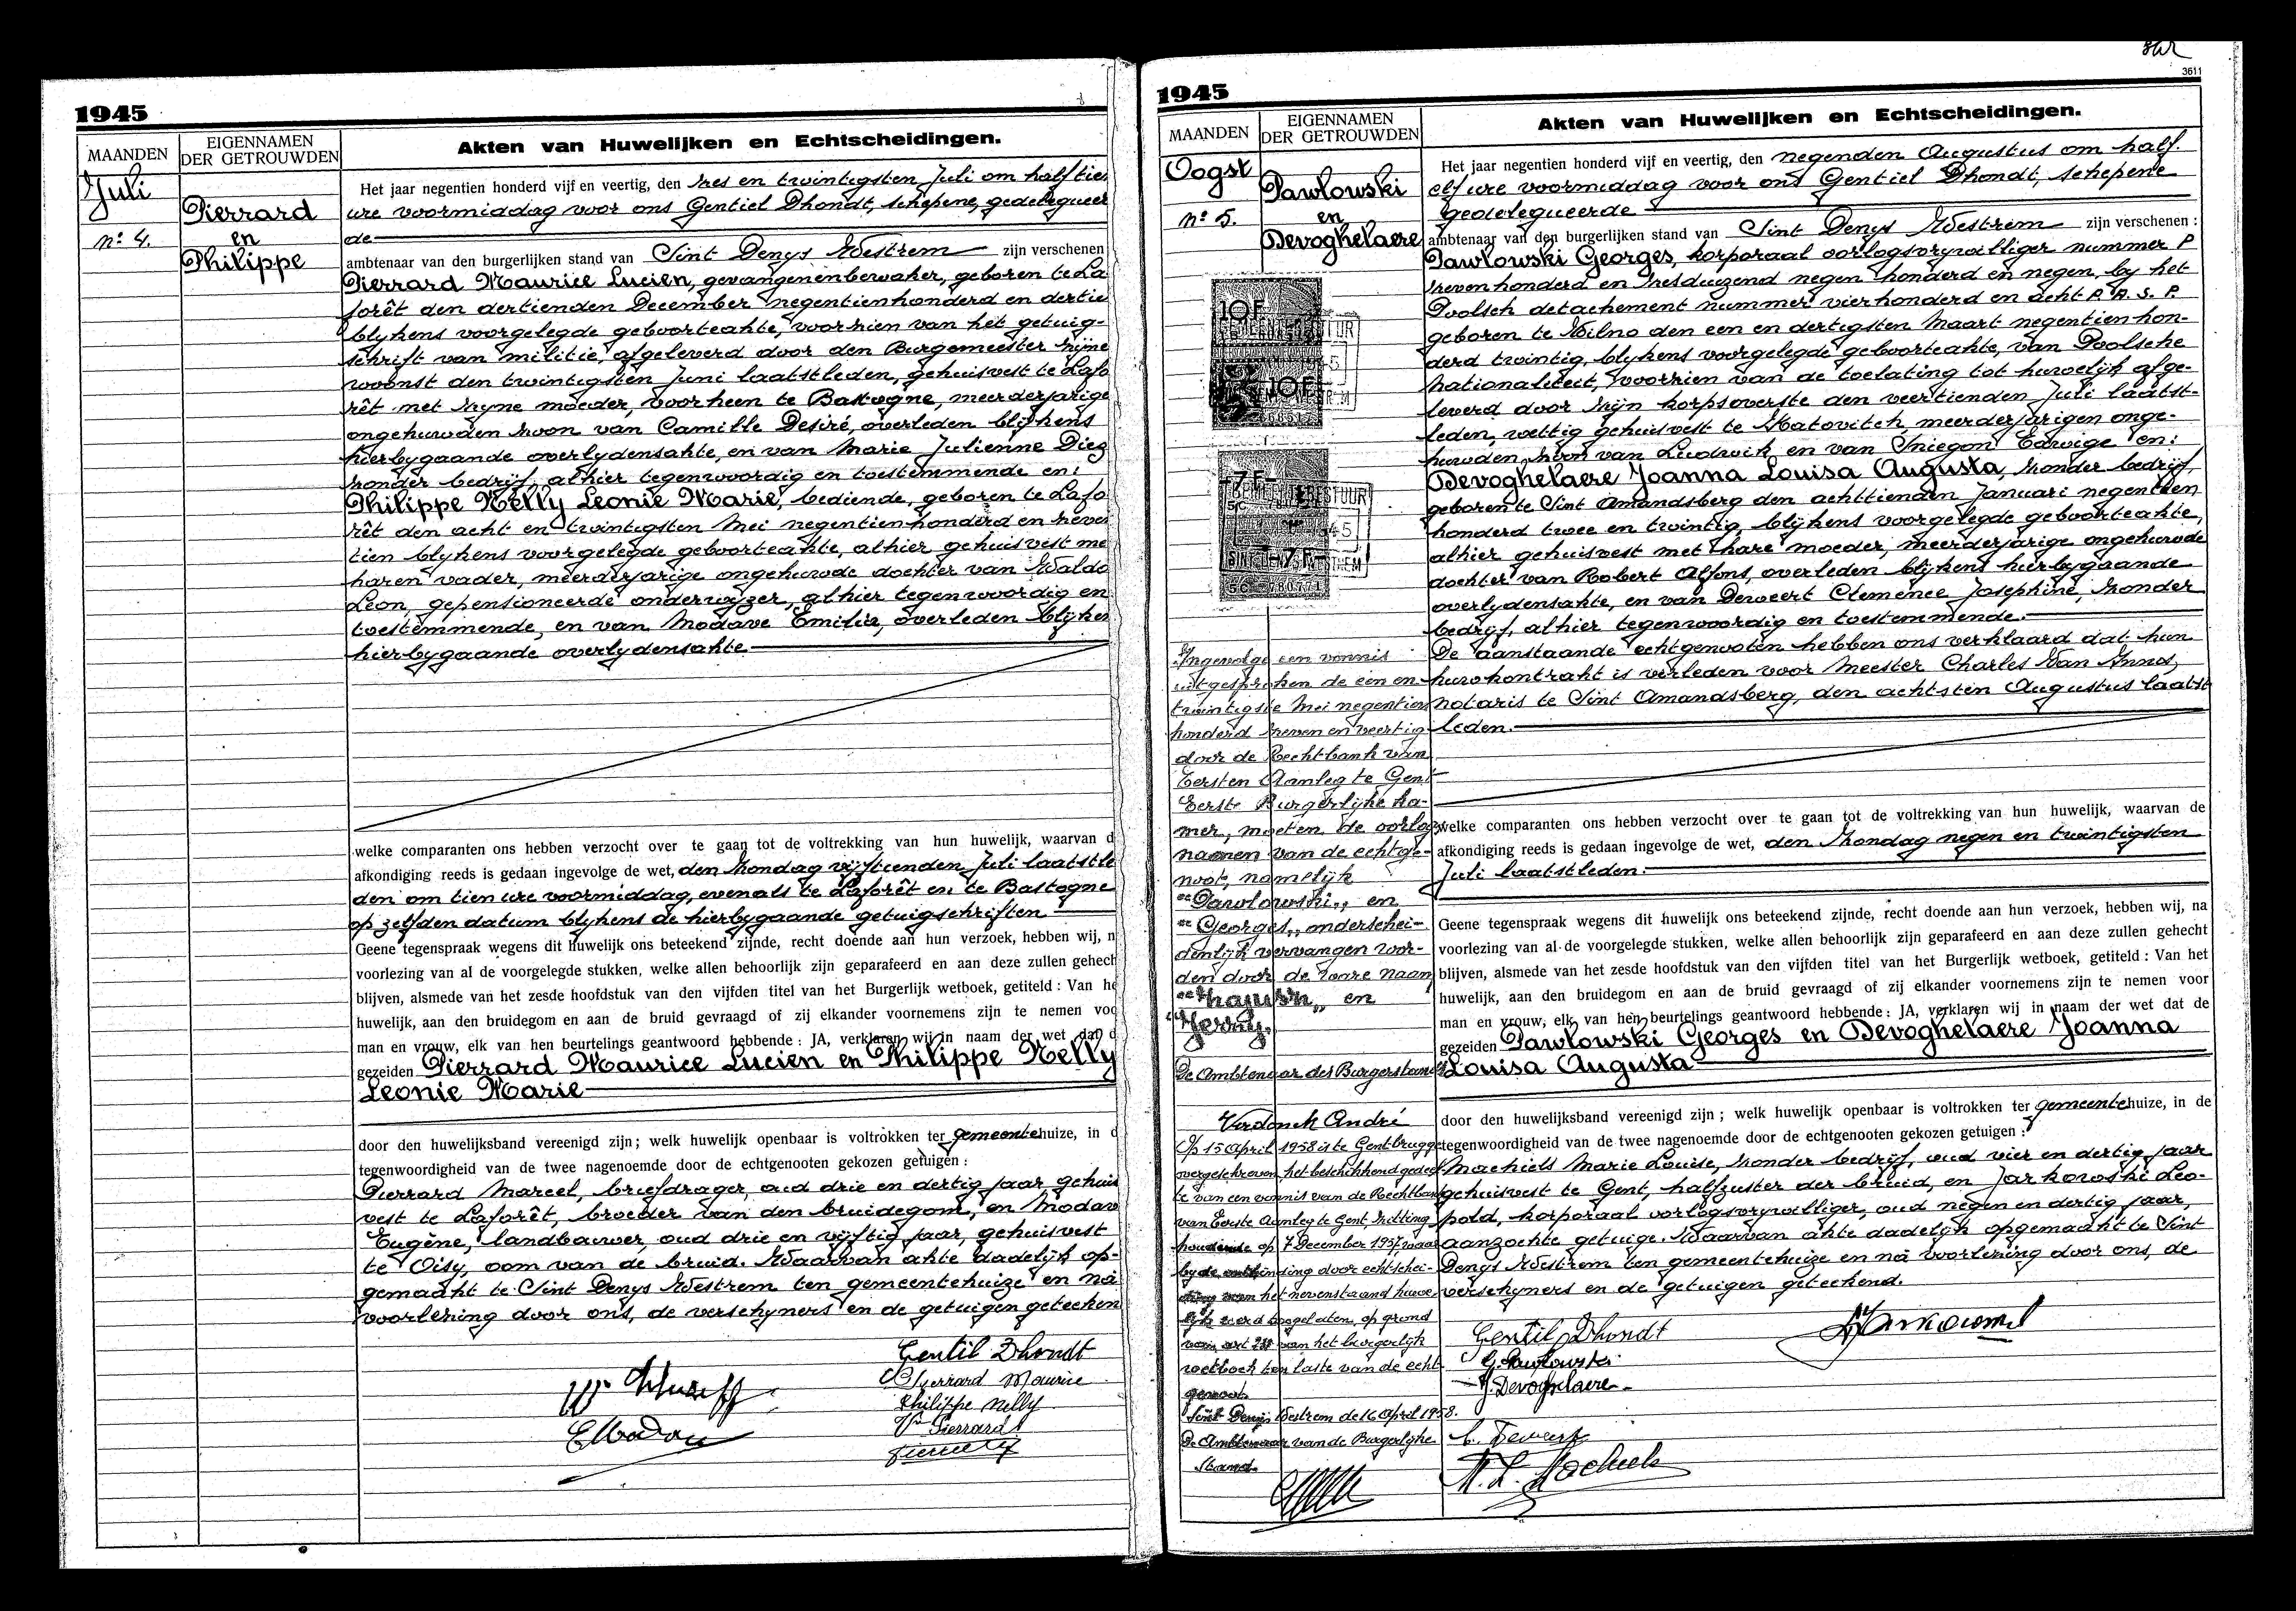 1945
MAANDEN
EIGENNAMEN
DER GETROUWDEN
Akten van Huwelijken en Echtscheidingen.
Juli
nº 4.
Pierrard
en
Philippe
Het jaar negentien honderd vijf en veertig, den zes en twintigsten Juli om half tien
ure voormiddag voor ons Gentiel Dhondt, schepene, gedelegueer
de
ambtenaar van den burgerlijken stand van Sint Denys Westrem zijn verschenen
Pierrard Maurice Lucien, gevangenenbewaker, geboren te La
forêt den dertienden December negentienhonderd en dertie
blijkens voorgelegde geboorteakte, voorzien van het getuig-
schrift van militie, afgeleverd door den Burgemeester zijne
woonst den twintigsten Juni laatstleden, gehuisvest te Lafo
rêt met zyne moeder, voorheen te Bastogne, meerderjarige
ongehuwden zoon van Camille Desiré, overleden blijkens
hierbygaande overlydensakte, en van Marie Julienne Dieg
zonder bedrijf, alhier tegenwoordig en toestemmende en:
Philippe Nelly Leonie Marie, bediende, geboren te Lafo
rêt den acht en twintigsten Mei negentienhonderd en zeven
tien blijkens voorgelegde geboorteakte, alhier gehuisvest me
haren vader, meerderjarige ongehuwde dochter van Waldo
Leon, gepensioneerde onderwijzer, alhier tegenwoordig en
toestemmende, en van Modave Emilie, overleden blijken
hierbygaande overlydensakte
welke comparanten ons hebben verzocht over te gaan tot de voltrekking van hun huwelijk, waarvan d
afkondiging reeds is gedaan ingevolge de wet, den Zondag vijftienden Juli laatstle
den om tien ure voormiddag, evenals te Laforêt en te Bastogne
op zelfden datum blijkens de hierbygaande getuigschriften
Geene tegenspraak wegens dit huwelijk ons beteekend zijnde, recht doende aan hun verzoek, hebben wij, n
voorlezing van al de voorgelegde stukken, welke allen behoorlijk zijn geparafeerd en aan deze zullen gehech
blijven, alsmede van het zesde hoofdstuk van den vijfden titel van het Burgerlijk wetboek, getiteld : Van he
huwelijk, aan den bruidegom en aan de bruid gevraagd of zij elkander voornemens zijn te nemen voo
man en vrouw, elk van hen beurtelings geantwoord hebbende : JA, verklaren wij in naam der wet dat d
gezeiden Pierrard Maurice Lucien en Philippe Nelly
Leonie Marie
door den huwelijksband vereenigd zijn ; welk huwelijk openbaar is voltrokken ter gemeentehuize, in d
tegenwoordigheid van de twee nagenoemde door de echtgenooten gekozen getuigen :
Pierrard Marcel, briefdrager, oud drie en dertig jaar gehuis
vest te Laforêt, broeder van den bruidegom, en Modav
Eugène, landbouwer, oud drie en vijftig jaar, gehuisvest
te Oisy, oom van de bruid. Waarvan akte dadelijk op-
gemaakt te Sint Denys Westrem ten gemeentehuize en na
voorlezing door ons, de verschyners en de getuigen geteeken
Gentil Dhondt
Pierrard Maurice
Philippe Nelly
Vve Pierrard
EModave
1945
3611
MAANDEN
EIGENNAMEN
DER GETROUWDEN
Akten van Huwelijken en Echtscheidingen.
Oogst
nº 5.
Pawlowski
en
Devoghelaere
Het jaar negentien honderd vijf en veertig, den negenden Augustus om half
elf ure voormiddag voor ons Gentiel Dhondt, schepene
gedelegueerde
ambtenaar van den burgerlijken stand van Sint Denys Westrem zijn verschenen :
Pawlowski Georges, korporaal oorlogsvrywilliger nummer P
zevenhonderd en zesduizend negen honderd en negen, by het
Poolsch detachement nummer vierhonderd en acht P. A. S. P.
geboren te Wilno den een en dertigsten Maart negentien hon-
derd twintig, blijkens voorgelegde geboorteakte, van Poolsche
Nationaliteit, voorzien van de toelating tot huwelijk afge-
leverd door zijn korpsoverste den veertienden Juli laatst-
leden, wettig gehuisvest te Katovitch, meerderjarigen onge-
huwden, zoon van Ludwik en van Sniegon Edwige en:
Devoghelaere Joanna Louisa Augusta, zonder bedrijf,
geboren te Sint Amandsberg den achttienden Januari negentien
honderd twee en twintig, blijkens voorgelegde geboorteakte,
alhier gehuisvest met hare moeder, meerderjarige ongehuwde
dochter van Robert Alfons, overleden blijkens hierbygaande
overlydensakte, en van Deweert Clemence Josephine, zonder
bedrijf, alhier tegenwoordig en toestemmende.
De aanstaande echtgenooten hebben ons verklaard dat hun
huwkontrakt is verleden voor Meester Charles Van Innes,
notaris te Sint Amandsberg, den achtsten Augustus laatst
leden.
welke comparanten ons hebben verzocht over te gaan tot de voltrekking van hun huwelijk, waarvan de
afkondiging reeds is gedaan ingevolge de wet, den Zondag negen en twintigsten
Juli laatstleden.
Geene tegenspraak wegens dit huwelijk ons beteekend zijnde, recht doende aan hun verzoek, hebben wij, na
voorlezing van al de voorgelegde stukken, welke allen behoorlijk zijn geparafeerd en aan deze zullen gehecht
blijven, alsmede van het zesde hoofdstuk van den vijfden titel van het Burgerlijk wetboek, getiteld : Van het
huwelijk, aan den bruidegom en aan de bruid gevraagd of zij elkander voornemens zijn te nemen voor
man en vrouw, elk van hen beurtelings geantwoord hebbende : JA, verklaren wij in naam der wet dat de
gezeiden Pawlowski Georges en Devoghelaere Joanna
Louisa Augusta
door den huwelijksband vereenigd zijn ; welk huwelijk openbaar is voltrokken ter gemeentehuize, in de
tegenwoordigheid van de twee nagenoemde door de echtgenooten gekozen getuigen :
Machiels Marie Louise, zonder bedrijf, oud vier en dertig jaar
gehuisvest te Gent, halfzuster der bruid, en Jarkowski Leo-
pold, korporaal oorlogsvrywilliger, oud negen en dertig jaar,
aanzochte getuige. Waarvan akte dadelijk opgemaakt te Sint
Denys Westrem ten gemeentehuize en na voorlezing door ons, de
verschyners en de getuigen geteekend.
Gentil Dhondt
G. Pawlowski
J. Devoghelaere
C. Deweert
M. L. Machiels
10F
10F
7F
7F
Ingevolge een vonnis
uitgesproken de een en
twintigste Mei negentien
honderd zeven en veertig
door de Rechtbank van
Eersten Aanleg te Gent
Eerste Burgerlijke ka-
mer, moeten de oorlogs
namen van de echtge-
noot, namelijk
"Pawlowski" en
"Georges" onderschei-
denlijk vervangen wor-
den door de ware naam
en
"Jerzy."
De Ambtenaar des Burgerstand
Verdonck André
Op 15 April 1958 is te Gentbrugge
overgeschreven het beschikkend gedeel
te van een vonnis van de Rechtbank
van Eerste Aanleg te Gent, zitting
houdende op 7 December 1957, waar
by de ontbinding door echtschei-
ding van het nevenstaand huwe
lijk werd toegelaten, op grond
van art. van het burgerlijk
wetboek ten laste van de echt
genoot.
Sint Denijs Westrem de 16 April 1958.
De Ambtenaar van de Burgerlijke
Stand.